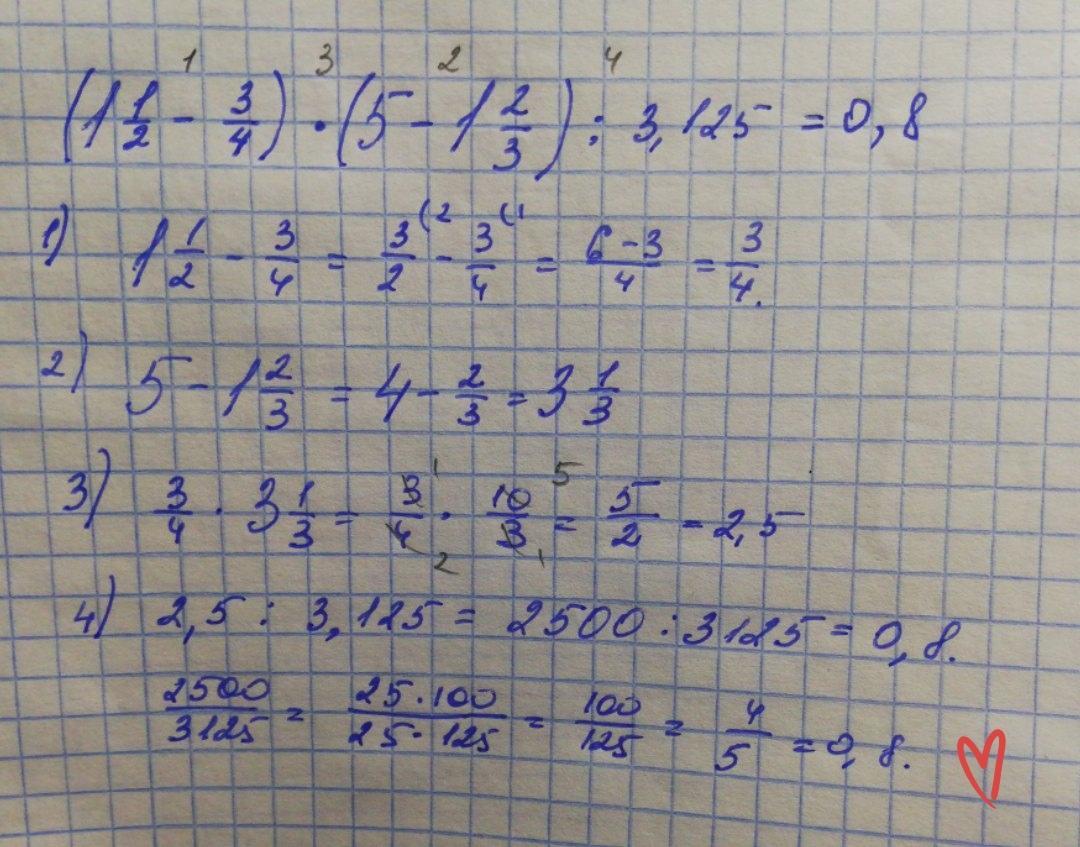 1 3 2 4
(1 1/2 - 3/4) · (5 - 1 2/3) : 3,125 = 0,8
1) 1 1/2 - 3/4 = 3/2 (2 - 3/4 (1 = 6-3/4 = 3/4.
2) 5 - 1 2/3 = 4 - 2/3 = 3 1/3
3) 3/4 · 3 1/3 = 3 1/4 2 · 10 5/3 1 = 5/2 = 2,5
4) 2,5 : 3,125 = 2500 : 3125 = 0,8.
2500/3125 = 25·100/25·125 = 100/125 = 4/5 = 0,8.